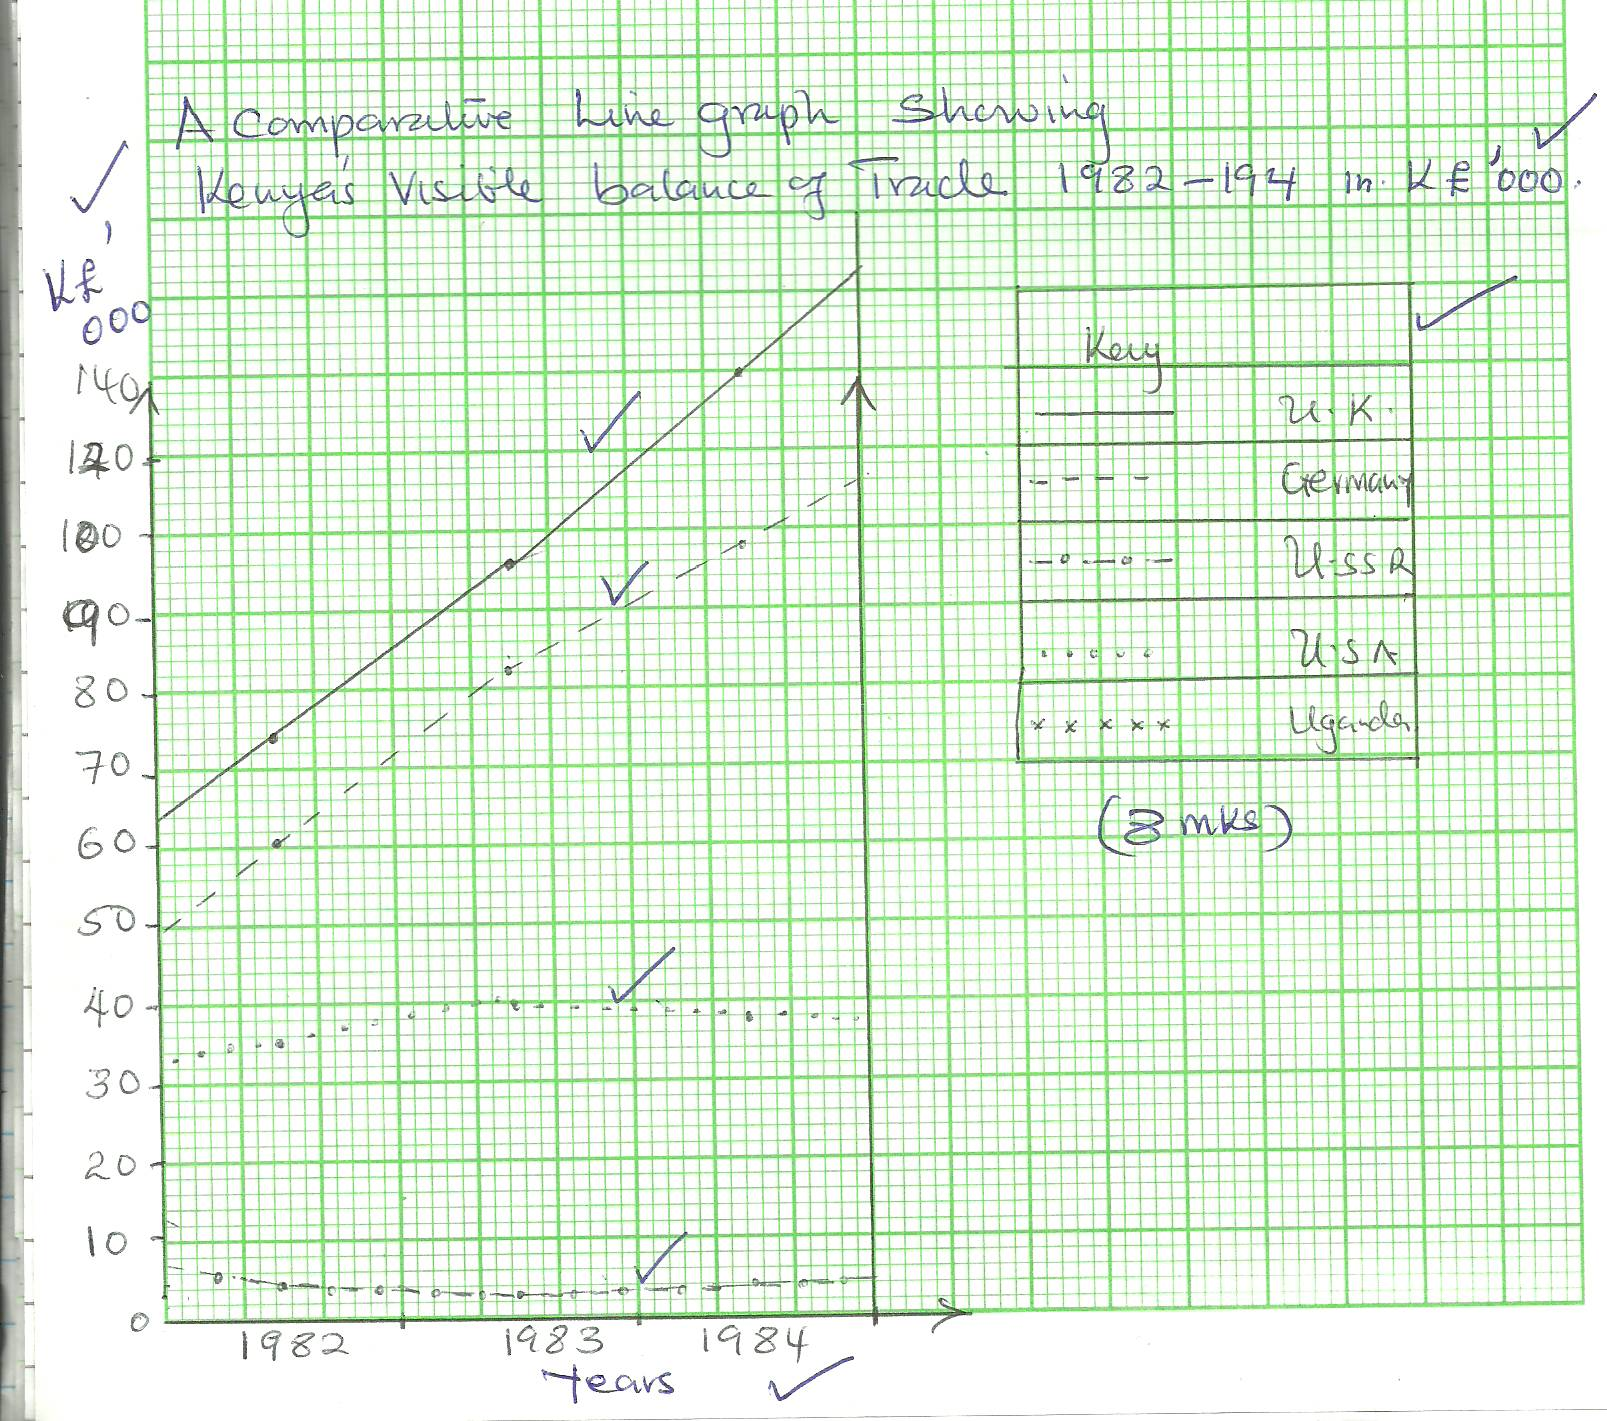 A Comparative Line graph Showing
Kenya's Visible balance of Trade 1982-194 in K£'000.
K£'
000
140
120
100
90
80
70
60
50
40
30
20
10
0
1982 1983 1984
Years
Key
U.K.
Germany
U.SSR
U.S.A
Uganda
(8 mks)